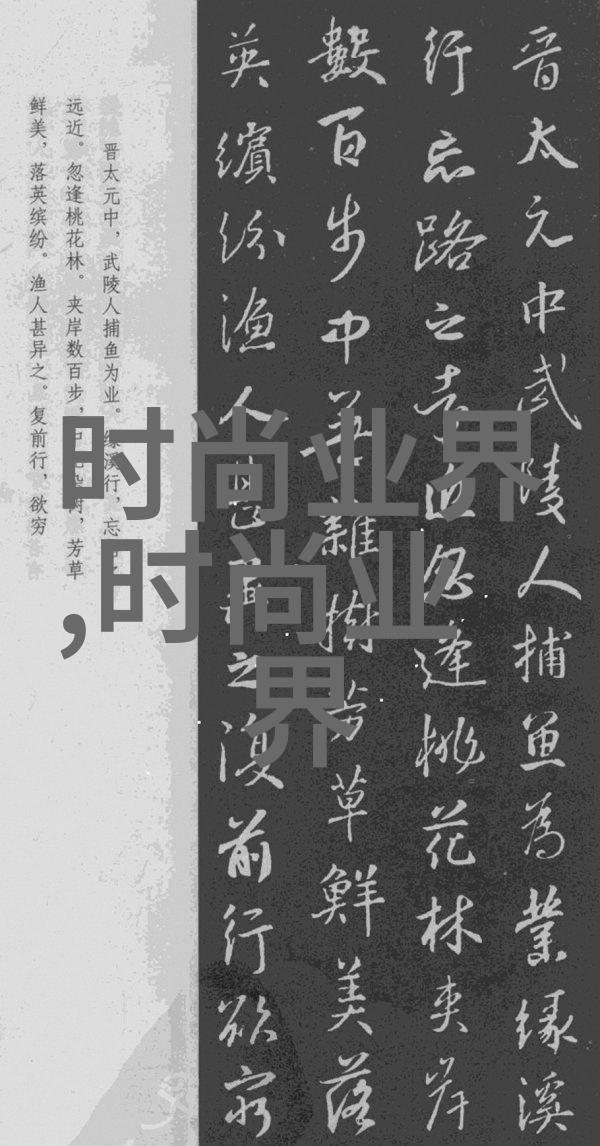 晋太元中武陵人捕魚為業緣溪
行忘路之遠近忽逢桃花林夾岸
數百步中華雜樹芳草鮮美落
英繽紛漁人甚異之復前行欲窮
晋太元中，武陵人捕鱼为业。缘溪行，忘
远近。忽逢桃花林。夹岸数百步，中树，芳草
鲜美，落英缤纷。渔人甚异之。复前行，欲穷
时尚业界
,时尚业
界